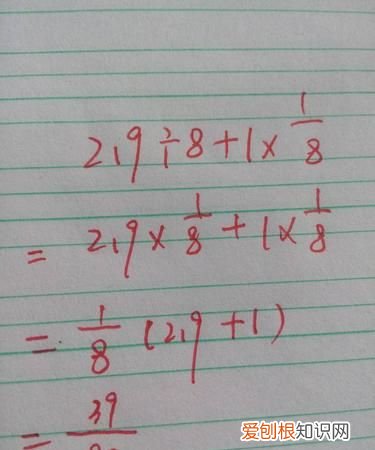 2.9÷8+1×1/8
=2.9×1/8+1×1/8
=1/8(2.9+1)
=39/
爱刨根知识网